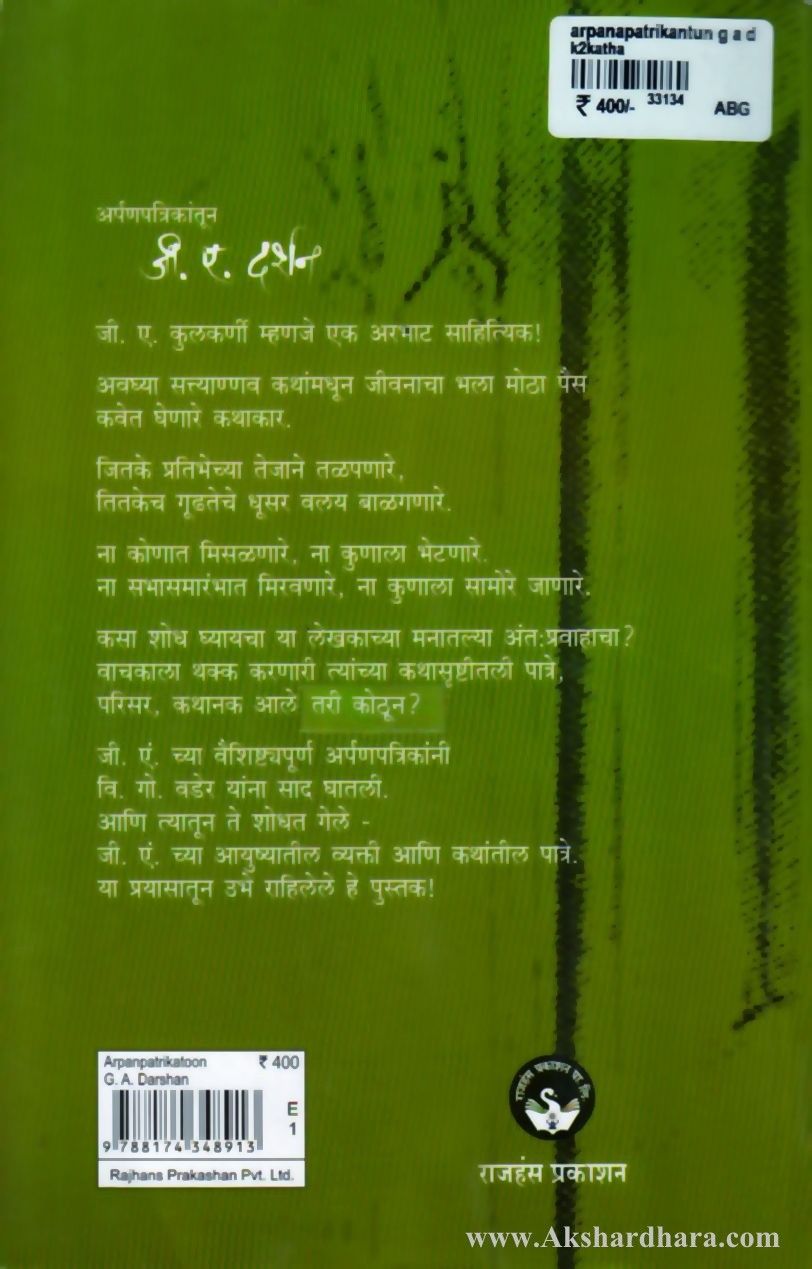 arpanapatrikantun g a d
k2katha
₹ 400/- 33134 ABG
अर्पणपत्रिकांतून
जी. ए. दर्शन
जी. ए. कुलकर्णी म्हणजे एक अरभाट साहित्यिक!
अवघ्या सत्त्याण्णव कथांमधून जीवनाचा भला मोठा पैस
कवेत घेणारे कथाकार.
जितके प्रतिभेच्या तेजाने तळपणारे,
तितकेच गूढतेचे धूसर वलय बाळगणारे.
ना कोणात मिसळणारे, ना कुणाला भेटणारे.
ना सभासमारंभात मिरवणारे, ना कुणाला सामोरे जाणारे.
कसा शोध घ्यायचा या लेखकाच्या मनातल्या अंत:प्रवाहाचा?
वाचकाला थक्क करणारी त्यांच्या कथासृष्टीतली पात्रे,
परिसर, कथानक आले तरी कोठून?
जी. एं. च्या वैशिष्ट्यपूर्ण अर्पणपत्रिकांनी
वि. गो. वडेर यांना साद घातली.
आणि त्यातून ते शोधत गेले -
जी. एं. च्या आयुष्यातील व्यक्ती आणि कथांतील पात्रे.
या प्रयासातून उभे राहिलेले हे पुस्तक!
Arpanpatrikatoon ₹ 400
G. A. Darshan
E
1
9 788174 348913
Rajhans Prakashan Pvt. Ltd.
राजहंस प्रकाशन प्रा. लि.
राजहंस प्रकाशन
www.Akshardhara.com